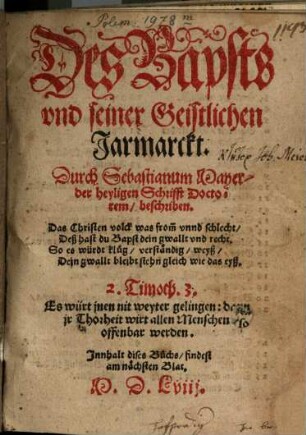 Polem 1978 m
Des Bapsts
vnd seiner Geistlichen
Jarmarckt.
Durch Sebastianum Mayer
der heyligen Schrifft Docto-
rem/ beschriben.
Das Christen volck was from̃ vnnd schlecht/
Deß hast du Bapst dein gwallt vnd recht.
So es würdt klůg/ verständig/ weyß/
Dein gwallt bleibt stehn gleich wie das eyß.
2. Timoth. 3.
Es würt jnen nit weyter gelingen: dann
jr Thorheit wirt allen Menschen
offenbar werden.
Innhalt dises Bůchs/ findest
am nächsten Blat.
M. D. Lviij.